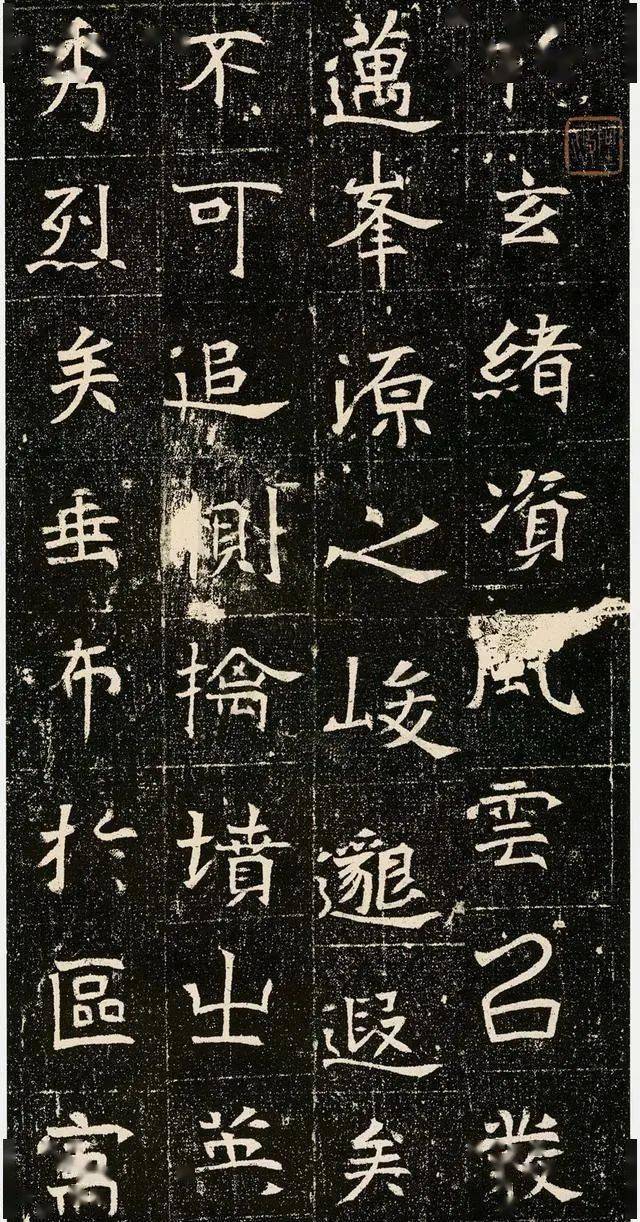 玄緒資風雲召發
邁峯源之峻邈遐矣
不可追惻擒墳出英
秀烈矣垂布於區寓